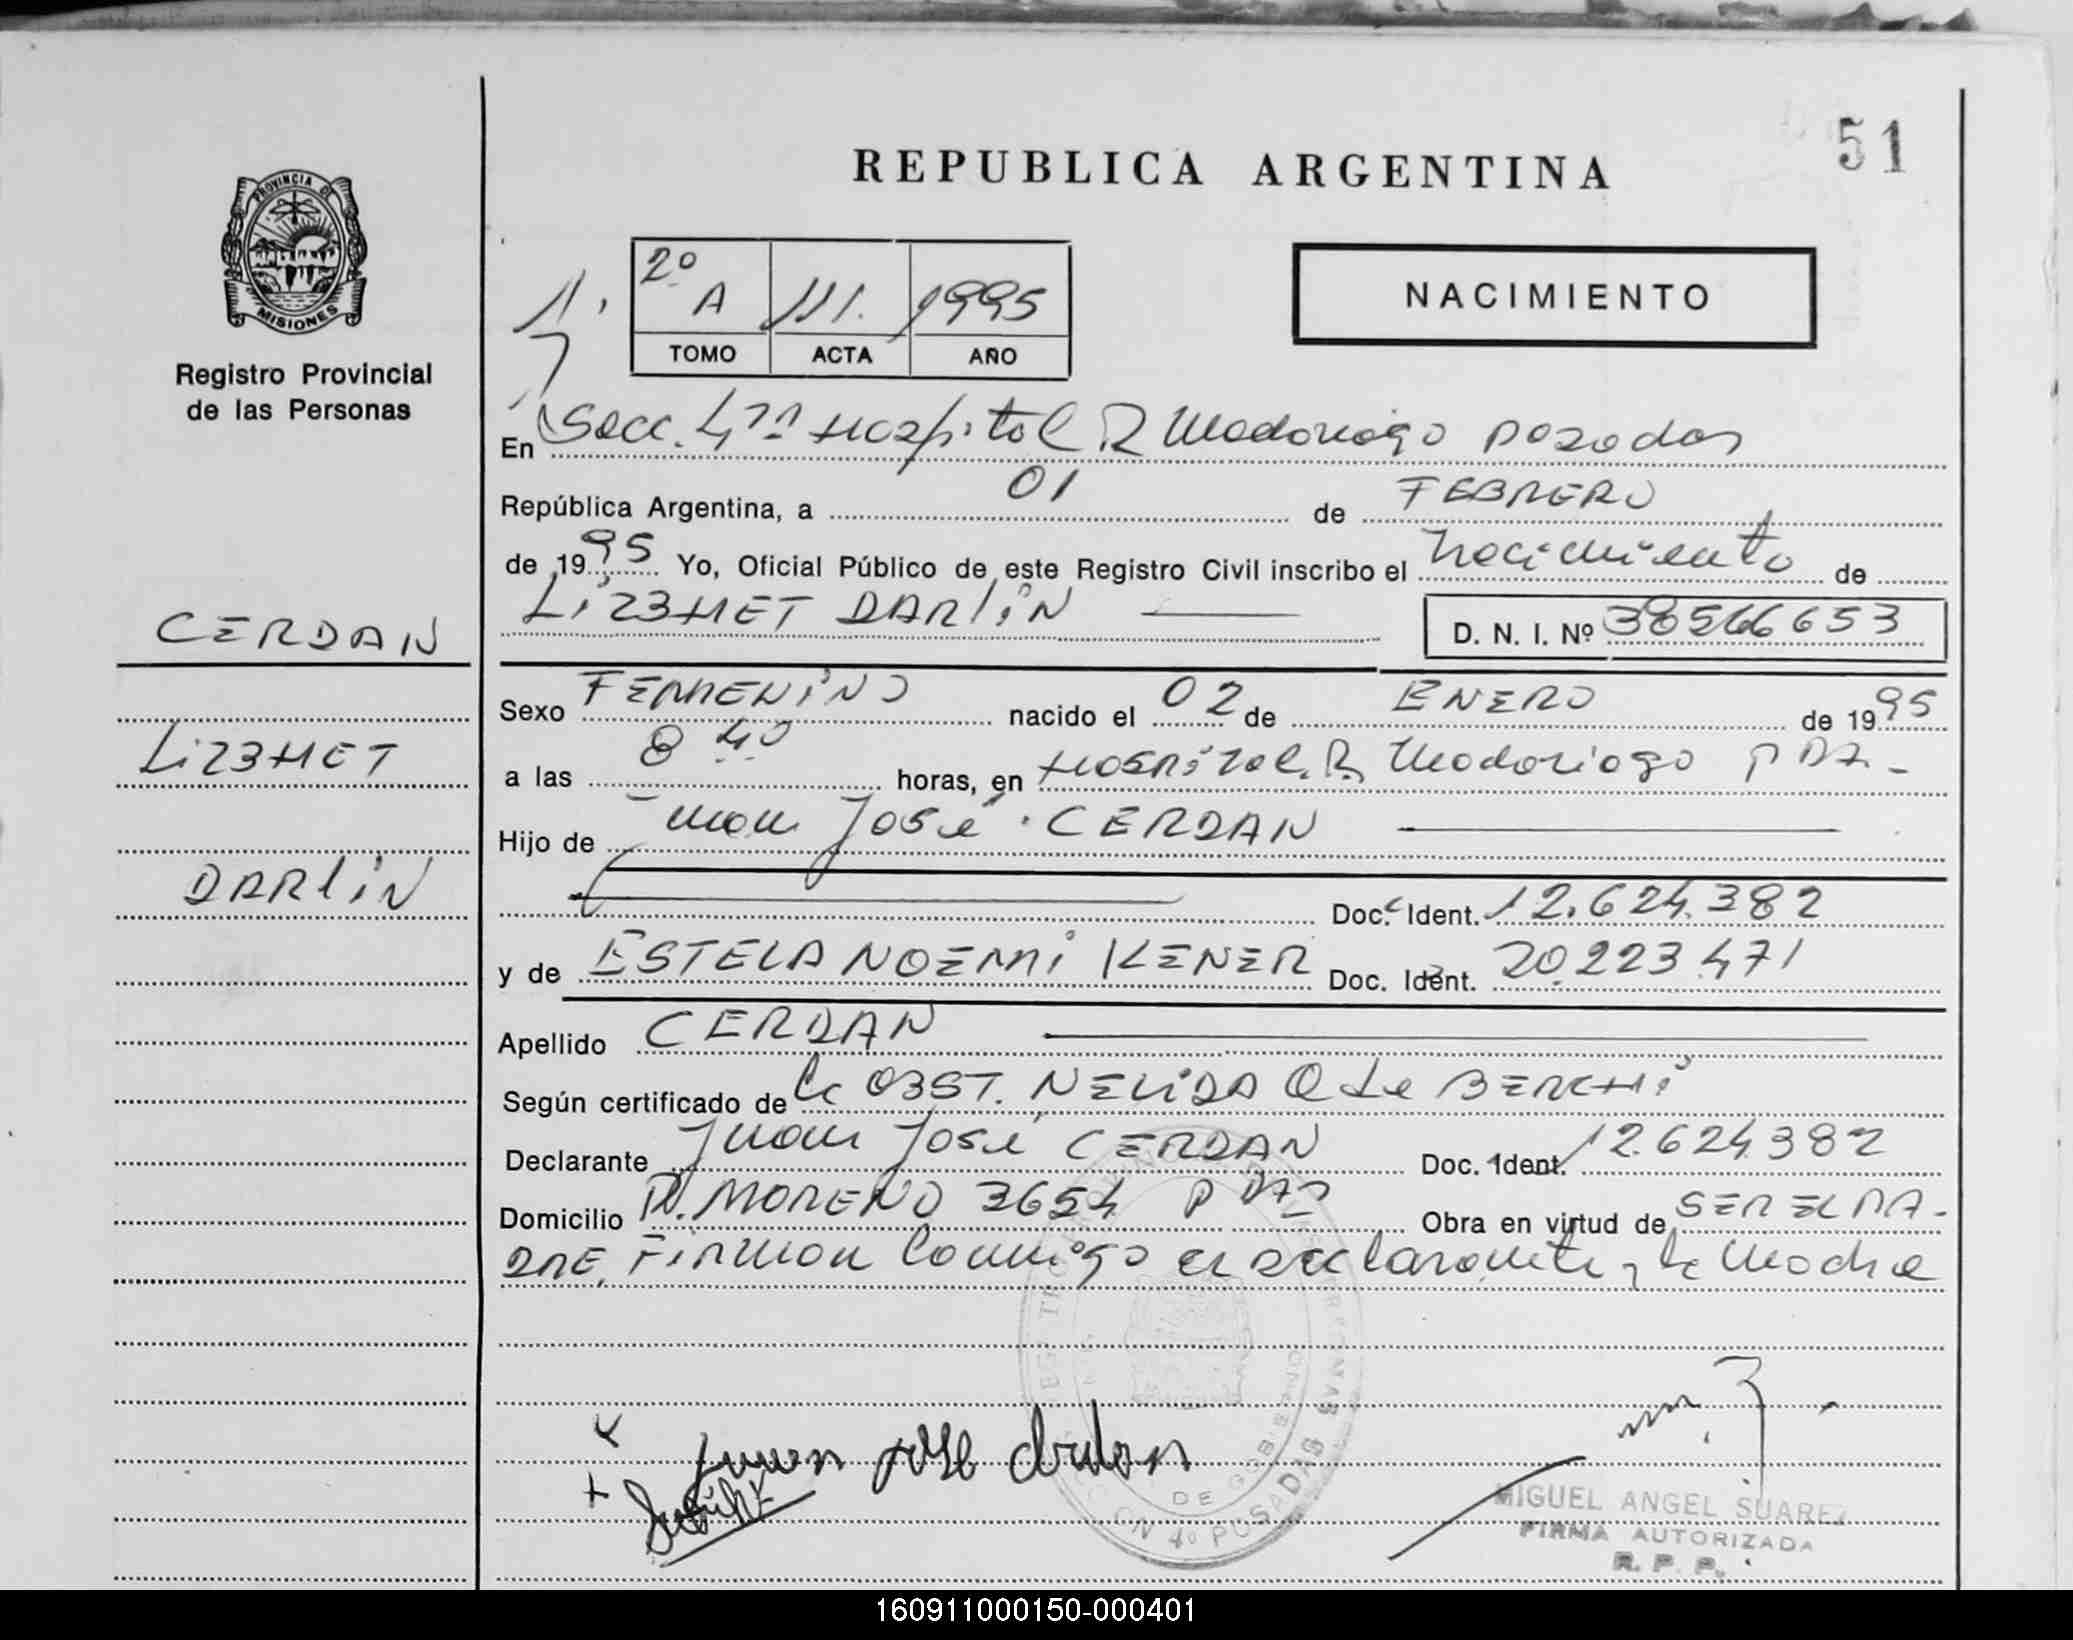 REPUBLICA ARGENTINA
51
PROVINCIA DE
MISIONES
Registro Provincial
de las Personas
2º A 111. 1995
TOMO ACTA AÑO
NACIMIENTO
En Secc. 4ta Hospital R Madariaga Posadas
República Argentina, a 01 de FEBRERO
de 1995 Yo, Oficial Público de este Registro Civil inscribo el nacimiento de
LiZBHET DARLiN
D. N. I. Nº 38566653
CERDAN
LiZBHET
DARLiN
Sexo FEMENiNO nacido el 02 de ENERO de 1995
a las 8 40 horas, en HOSPiTAL. R. Madariaga PDAS -
Hijo de Juan José CERDAN
Doc. Ident. 12.624.382
y de ESTELA NOEMi KENER Doc. Ident. 20.223.471
Apellido CERDAN
Según certificado de la OBST. NELiDA Q de BERCHi
Declarante Juan José CERDAN Doc. Ident. 12.624.382
Domicilio MORENO 3654 PDAS Obra en virtud de SER EL PA-
DRE. FiRMAN Conmigo el declarante y la Madre
Juan José Cerdan
DE GOBIERNO
4º POSADAS
MIGUEL ANGEL SUAREZ
FIRMA AUTORIZADA
R. P. P.
160911000150-000401